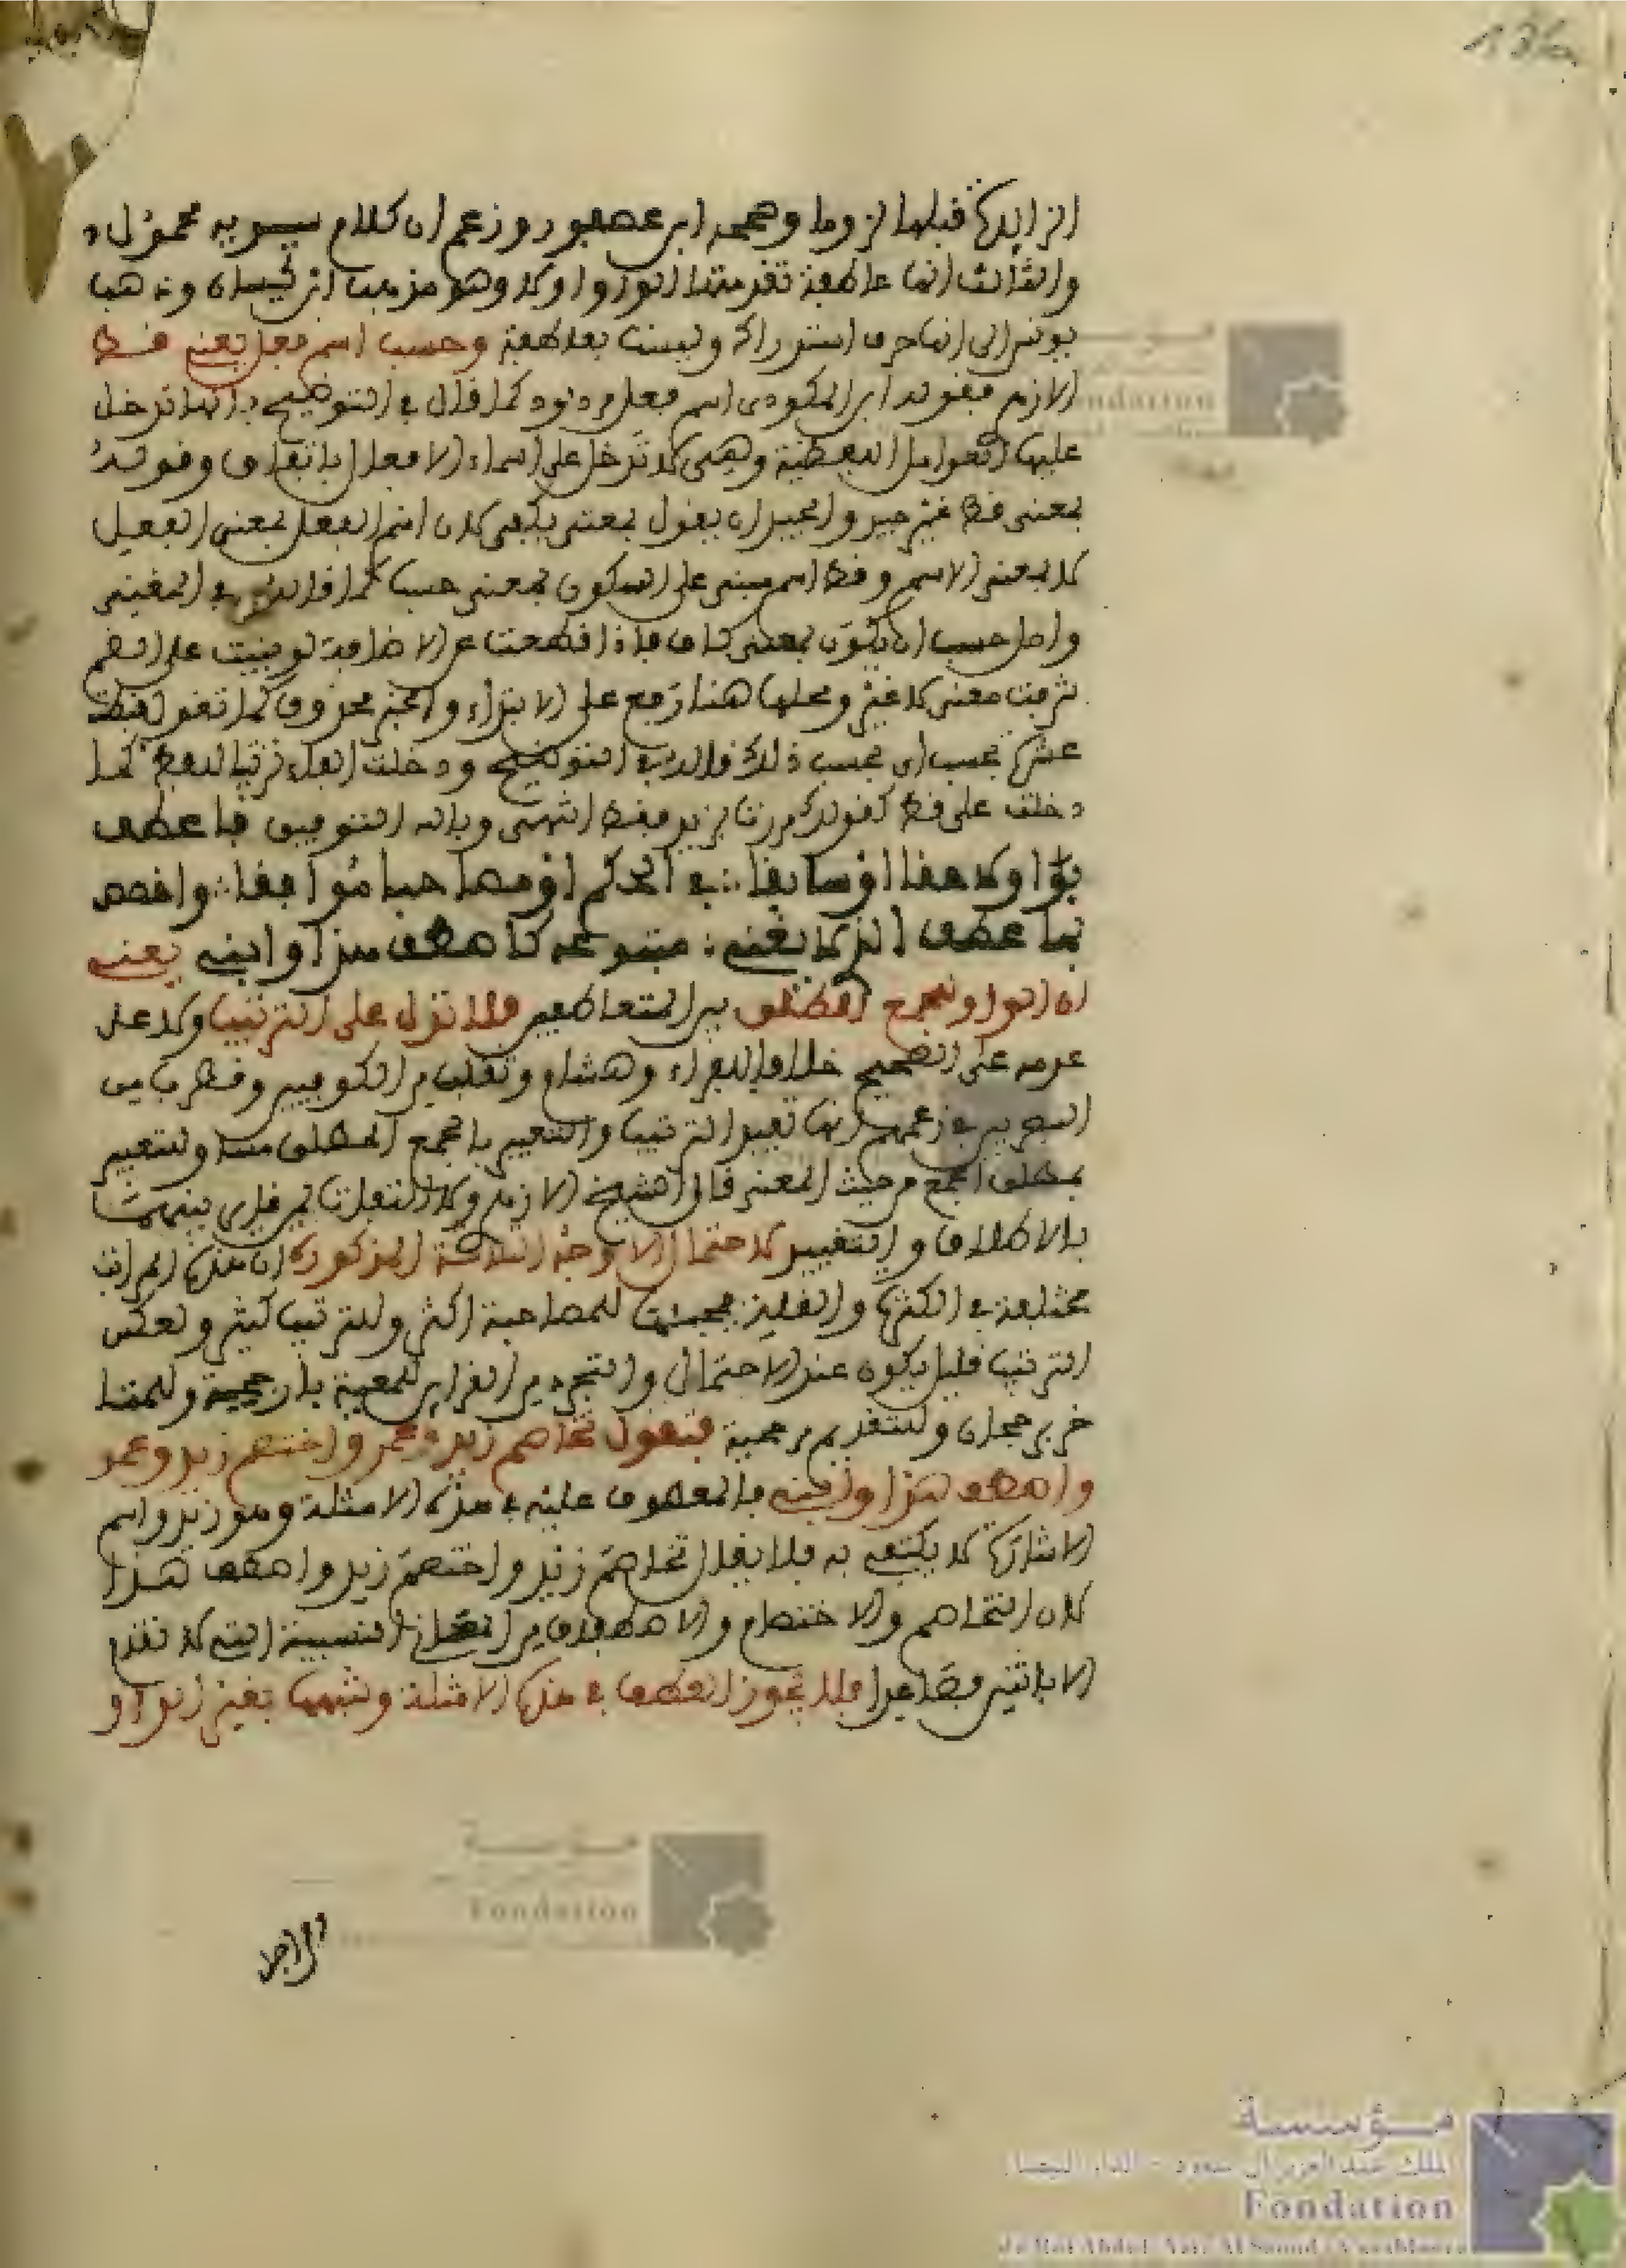 الزايدة قبلها لزوما وصححه ابن عصفور وزعم ان كلام سيبويه محمول
والثالث انها عاطفة تقدمتها الواو اولا وهو مذهب ابن كيسان وذهب
يونس الى انها حرف استدراك وليست بعاطفة وحسب اسم فعل يعني قط
الازهري فقول المكودي اسم فعل مردود كما قال في التوضيح بانها تدخل
عليها العوامل اللفظية وهي لا تدخل على اسماء الافعال باتفاق وقوله
بمعنى قط غير جيد والجيد ان يقول بمعنى يكفي لان اسم الفعل بمعنى الفعل
لا بمعنى الاسم وقط اسم مبني على السكون بمعنى حسب كما قال في المغني
واصل حسب ان يكون بمعنى كاف فاذا قطعت عن الاضافة بنيت على الضم
شربت معنى لا غير ومحلها هنا رفع على الابتداء والخبر محذوف كما تقول قبضت
عشرة فحسب اي فحسب ذلك قاله في التوضيح ودخلت الفاء تزيينا للفظ كما
دخلت على قط كقولك مررت بزيد فقط انتهى وبالله التوفيق فاعطف
بواو لاحقا او سابقا : في الحكم او مصاحبا موافقا : واخصص
بها عطف الذي لا يغني : متبوعه كاصطف هذا وابني يعني
ان الواو لجمع المطلق بين المتعاطفين فلا تدل على الترتيب ولا على
عدمه على الصحيح خلافا للفراء وهشام وثعلب من الكوفيين وقطرب من
البصريين في زعمهم انها تفيد الترتيب والتعبير بالجمع المطلق مساو للتعبير
بمطلق الجمع من حيث المعنى قال الشيخ الازهري ولا التفات لمن فارق بينهما
بالاطلاق والتقييد لاحتمال الاوجه الثلاثة المذكورة ان هذه المراتب
مختلفة في الكثرة والقلة فمجيئها للمصاحبة اكثر وللترتيب كثير ولعكس
الترتيب قليل يكون عند الاحتمال والتجرد من القراين للمعية بارجحية وللمتا
خر برجحان وللمتقدم بمرجحية فتقول تخاصم زيد وعمر واختصم زيد وعمر
واصطف هذا وابني فالمعطوف عليه في هذه الامثلة وهو زيد واسم
الاشارة لا يكتفى به فلا يقال تخاصم زيد واختصم زيد واصطف هذا
لان التخاصم والاختصام والاصطفاف من المعاني النسبية التي لا تقوم
الا باثنين فصاعدا فلا يجوز العطف في هذه الامثلة وشبهها بغير الواو
مؤسسة
الملك عبد العزيز آل سعود - الدار البيضاء
Fondation
du Roi Abdul-Aziz Al Saoud - Casablanca